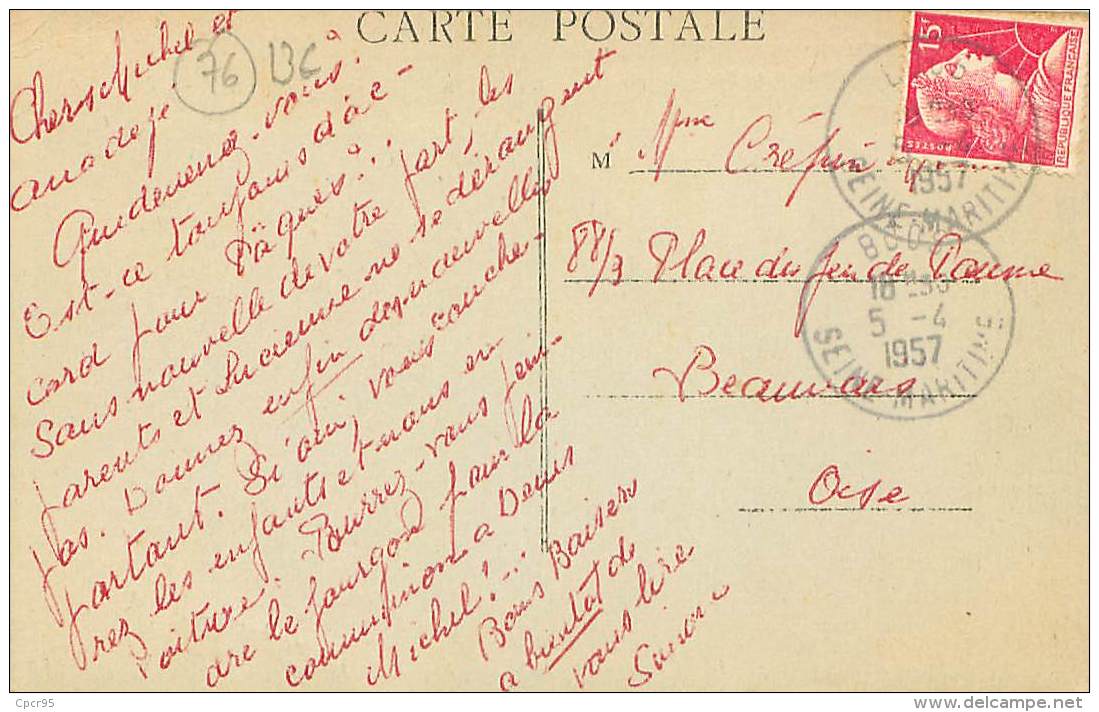 CARTE POSTALE
76
Cher Michel et
Que devenez-vous?
Est-ce toujours d'ac-
cord pour Pâques?..
Sans nouvelle de votre part, les
parents et Lucienne ne se dérangent
pas. Donnez enfin des nouvelles
partant. Si oui, vous couche-
rez les enfants et nous en
voiture. Pourrez-vous
le fourgon pour la
communion à Denis
Michel!..
Bons Baisers
a bientôt de
vous lire
Simone
M Mme Crépin
88/3 Place du Jeu de Paume
Beauvais
Oise
15F
POSTES
REPUBLIQUE FRANÇAISE
1957
SEINE-MARITIME
18 H30
5 -4
1957
SEINE MARITIME
Cpcr95
www.delcampe.net